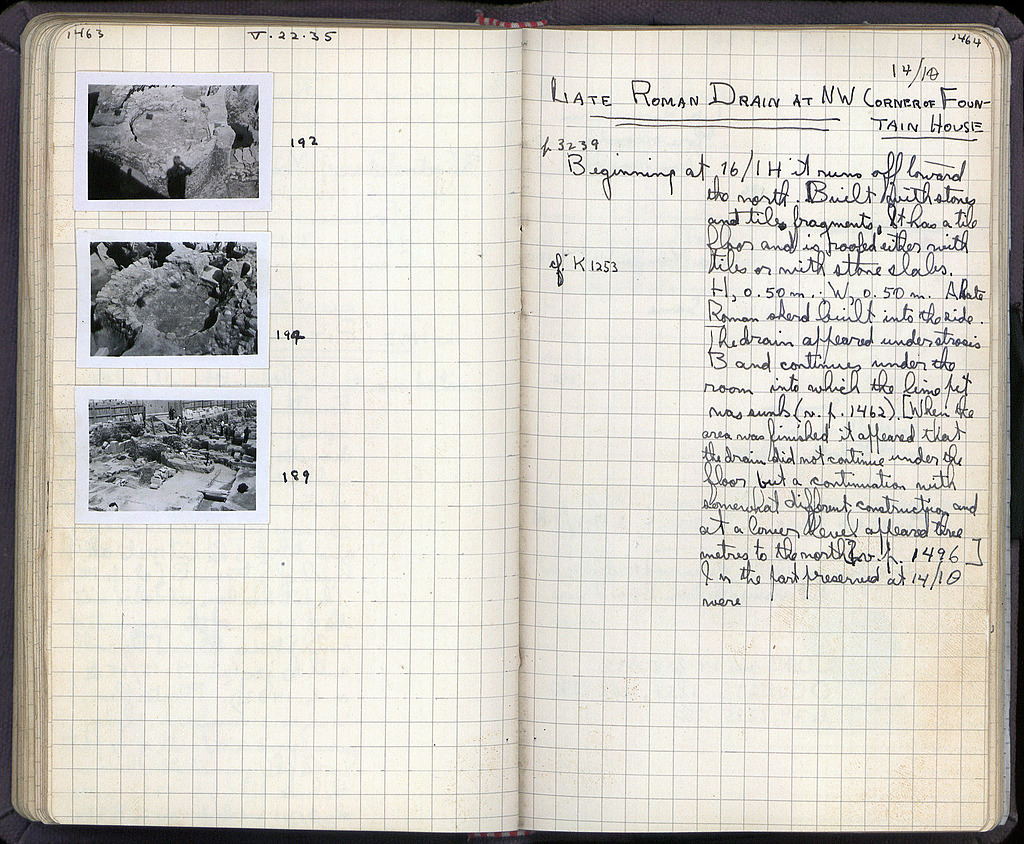 1463
V.22.35
192
194
189
1464
14/ΙΘ
LATE ROMAN DRAIN AT NW CORNER OF FOUN-
TAIN HOUSE
p 3239
Beginning at 16/ΙΗ it runs off toward
the north. Built with stones
and tile fragments, It has a tile
floor and is roofed either with
cf. K 1253
tiles or with stone slabs.
H, 0.50 m.; W, 0.50 m. A late
Roman sherd built into the side.
The drain appeared under strosis
B and continues under the
room into which the lime pit
was sunk (v. p. 1462). [When the
area was finished it appeared that
the drain did not continue under the
floor but a continuation with
somewhat different construction and
at a lower level appeared three
metres to the north v. p. 1496]
In the part preserved at 14/ΙΘ
were